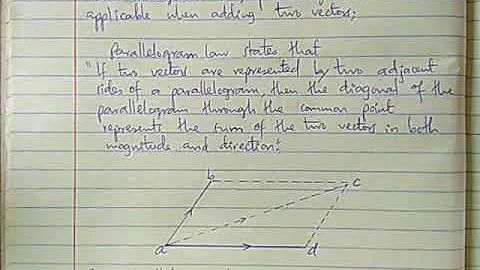 applicable when adding two vectors;
Parallelogram law states that
"If two vectors are represented by two adjacent
sides of a parallelogram, then the diagonal of the
parallelogram through the common point
represents the sum of the two vectors in both
magnitude and direction".
b
c
a
d